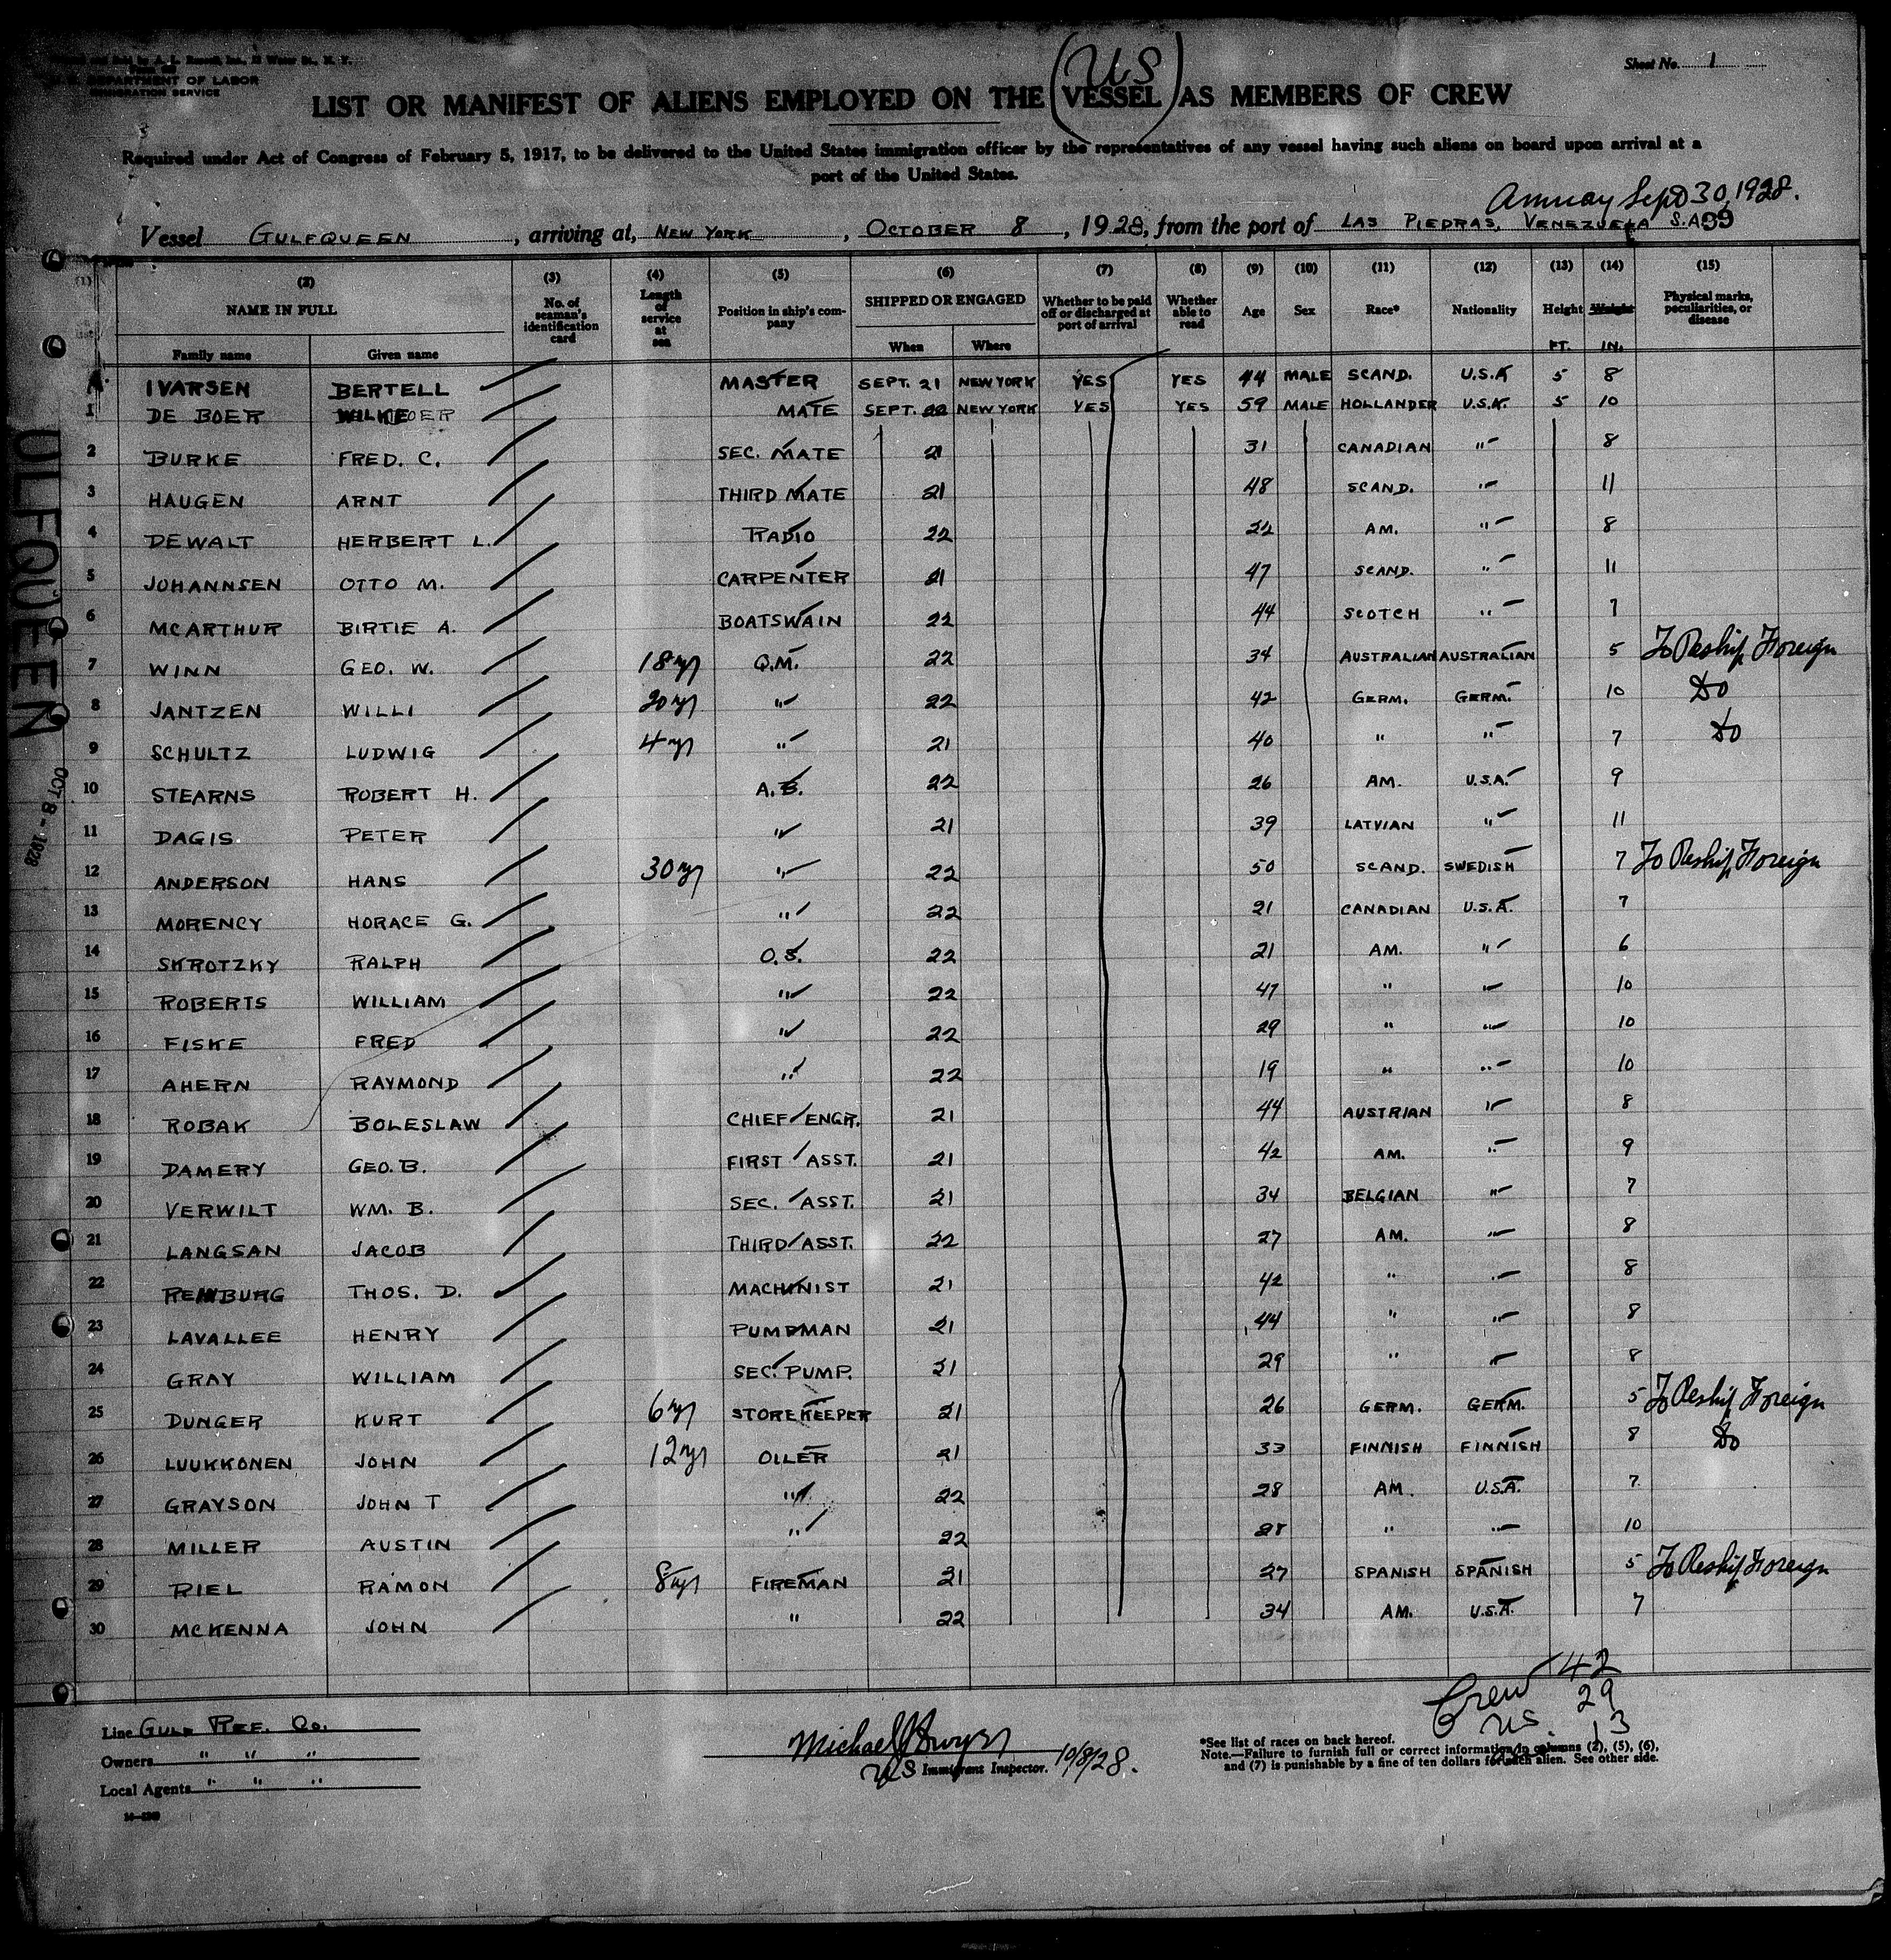 Sheet No. 1
DEPARTMENT OF LABOR
IMMIGRATION SERVICE
(US)
LIST OR MANIFEST OF ALIENS EMPLOYED ON THE VESSEL AS MEMBERS OF CREW
Required under Act of Congress of February 5, 1917, to be delivered to the United States immigration officer by the representatives of any vessel having such aliens on board upon arrival at a
port of the United States.
Amuay Sept 30, 1928.
Vessel GULFQUEEN, arriving at, NEW YORK, OCTOBER 8, 1928, from the port of LAS PIEDRAS, VENEZUELA S.A.
(1) (2) (3) (4) (5) (6) (7) (8) (9) (10) (11) (12) (13) (14) (15)
NAME IN FULL No. of seaman's identification card Length of service at sea Position in ship's company SHIPPED OR ENGAGED Whether to be paid off or discharged at port of arrival Whether able to read Age Sex Race* Nationality Height Weight Physical marks, peculiarities, or disease
Family name Given name When Where FT. IN.
IVARSEN BERTELL MASTER SEPT. 21 NEW YORK YES YES 44 MALE SCAND. U.S.A 5 8
1 DE BOER WILKE MATE SEPT. 22 NEW YORK YES YES 59 MALE HOLLANDER U.S.A. 5 10
2 BURKE FRED. C. SEC. MATE 21 31 CANADIAN " 8
3 HAUGEN ARNT THIRD MATE 21 48 SCAND. " 11
4 DEWALT HERBERT L. RADIO 22 22 AM. " 8
5 JOHANNSEN OTTO M. CARPENTER 21 47 SCAND. " 11
6 MCARTHUR BIRTIE A. BOATSWAIN 22 44 SCOTCH " 7
7 WINN GEO. W. 18 yr Q.M. 22 34 AUSTRALIAN AUSTRALIAN 5 To Reship Foreign
8 JANTZEN WILLI 20 yr " 22 42 GERM. GERM. 10 Do
9 SCHULTZ LUDWIG 4 yr " 21 40 " " 7 Do
10 STEARNS ROBERT H. A.B. 22 26 AM. U.S.A. 9
11 DAGIS PETER " 21 39 LATVIAN " 11
12 ANDERSON HANS 30 yr " 22 50 SCAND. SWEDISH 7 To Reship Foreign
13 MORENCY HORACE G. " 22 21 CANADIAN U.S.A. 7
14 SKROTZKY RALPH O.S. 22 21 AM. " 6
15 ROBERTS WILLIAM " 22 47 " " 10
16 FISKE FRED " 22 29 " " 10
17 AHERN RAYMOND " 22 19 " " 10
18 ROBAK BOLESLAW CHIEF ENGR. 21 44 AUSTRIAN " 8
19 DAMERY GEO. B. FIRST ASST. 21 42 AM. " 9
20 VERWILT WM. B. SEC. ASST. 21 34 BELGIAN " 7
21 LANGSAN JACOB THIRD ASST. 22 27 AM. " 8
22 THOS. D. MACHINIST 21 42 " " 8
23 LAVALLEE HENRY PUMPMAN 21 44 " " 8
24 GRAY WILLIAM SEC. PUMP. 21 29 " " 8
25 DUNGER KURT 6 yr STOREKEEPER 21 26 GERM. GERM. 5 To Reship Foreign
26 LUUKKONEN JOHN 12 yr OILER 21 33 FINNISH FINNISH 8 Do
27 GRAYSON JOHN T " 22 28 AM. U.S.A. 7
28 MILLER AUSTIN " 22 " " 10
29 RIEL RAMON 8 yr FIREMAN 21 27 SPANISH SPANISH 5 To Reship Foreign
30 MCKENNA JOHN " 22 34 AM. U.S.A. 7
GULFQUEEN
OCT 8 - 1928
Crew 42
US. 29
13
Line GULF REF. CO.
Owners " " "
Local Agents " " "
Michael
US Immigrant Inspector. 10/8/28.
*See list of races on back hereof.
Note.—Failure to furnish full or correct information in columns (2), (5), (6),
and (7) is punishable by a fine of ten dollars for each alien. See other side.